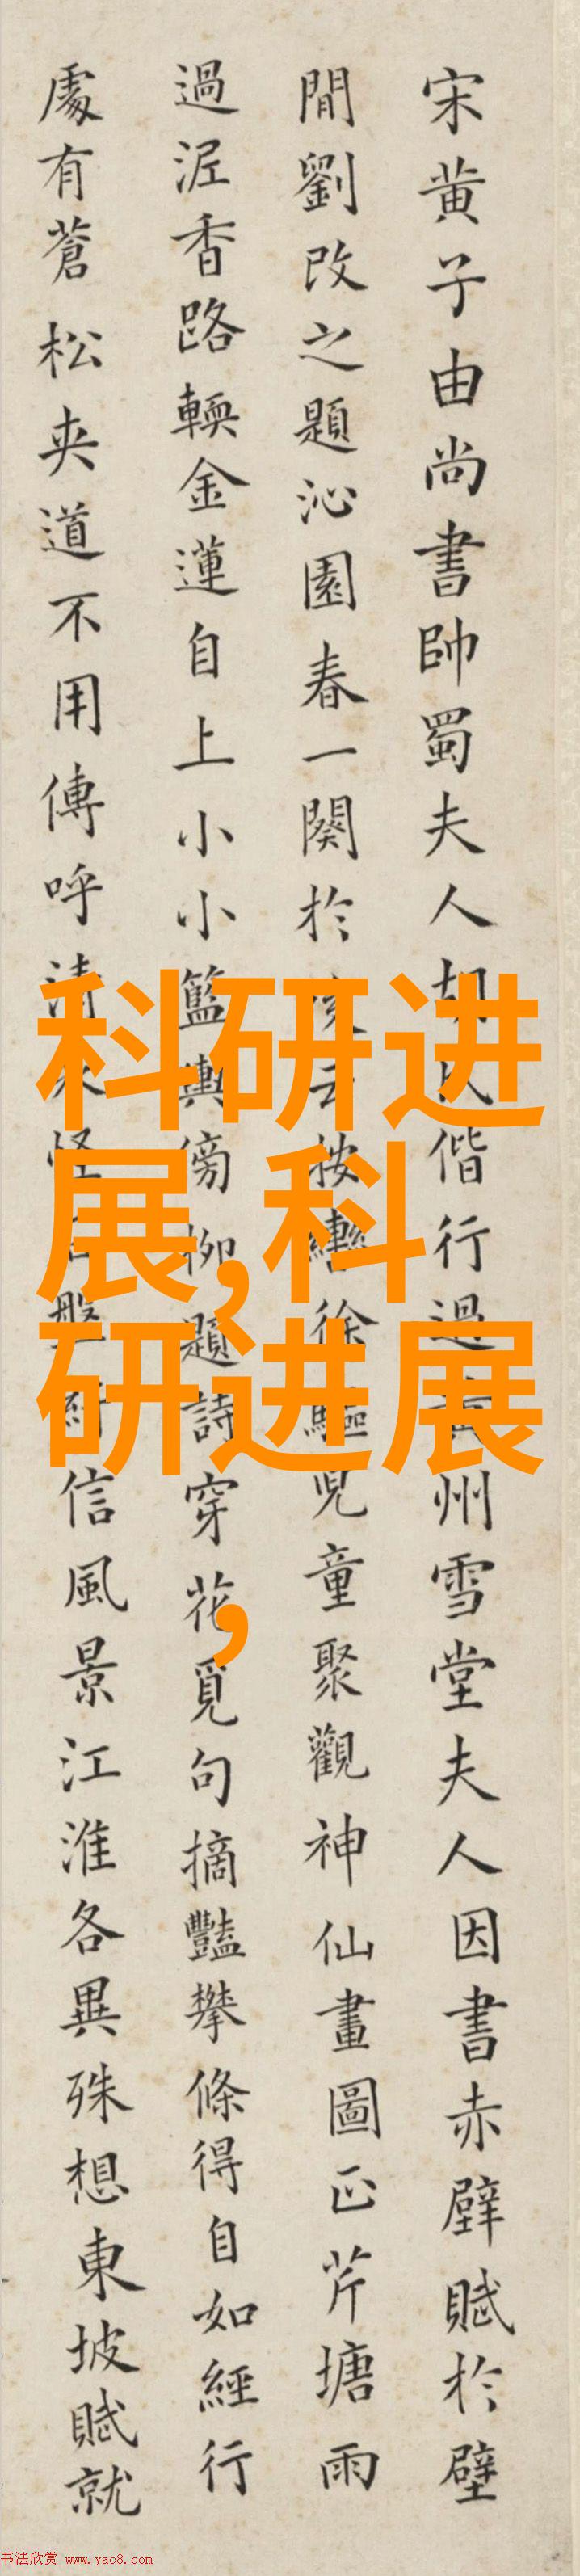 宋黄子由尚書帥蜀夫人胡氏偕行過黄州雪堂夫人因書赤壁賦於壁
間劉改之題沁園春一闋於後云按轡徐驅兒童聚觀神仙畫圖正芹塘雨
過泥香路輭金蓮自上小小籃輿傍柳題詩穿花覓句摘豔攀條得自如經行
處有蒼松夾道不用傳呼清泉怪石盤紆信風景江淮各異殊想東坡賦就
科研进
展,科
研进展
,
书法欣赏 www.yac8.com